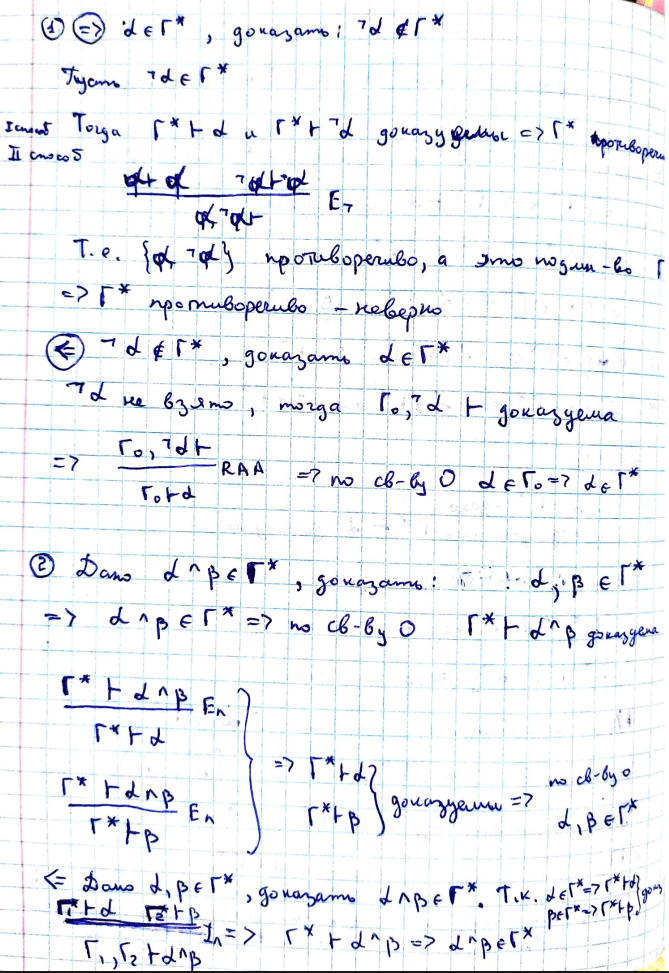 ① ⇒ α ∈ Γ*, доказать: ¬α ∉ Γ*
Пусть ¬α ∈ Γ*
I способ Тогда Γ* ⊢ α и Γ* ⊢ ¬α доказуемы => Γ* противоречи
II способ
α ⊢ α ¬α ⊢ ¬α
α, ¬α ⊢ E¬
Т.е. {α, ¬α} противоречиво, а это подмн-во Γ
=> Γ* противоречиво – неверно
⇐ ¬α ∉ Γ*, доказать α ∈ Γ*
¬α не взято, тогда Γ₀, ¬α ⊢ доказуема
=> Γ₀, ¬α ⊢ RAA => по св-ву 0 α ∈ Γ₀ => α ∈ Γ*
Γ₀ ⊢ α
② Дано α ∧ β ∈ Γ*, доказать: α, β ∈ Γ*
=> α ∧ β ∈ Γ* => по св-ву 0 Γ* ⊢ α ∧ β доказуема
Γ* ⊢ α ∧ β E∧
Γ* ⊢ α
Γ* ⊢ α ∧ β E∧
Γ* ⊢ β
=> Γ* ⊢ α
Γ* ⊢ β } доказуемы => по св-ву 0
α, β ∈ Γ*
⇐ Дано α, β ∈ Γ*, доказать α ∧ β ∈ Γ*. Т.к. α ∈ Γ* => Γ* ⊢ α
β ∈ Γ* => Γ* ⊢ β } док
Γ₁* ⊢ α Γ₂* ⊢ β I∧ => Γ* ⊢ α ∧ β => α ∧ β ∈ Γ*
Γ₁, Γ₂ ⊢ α ∧ β